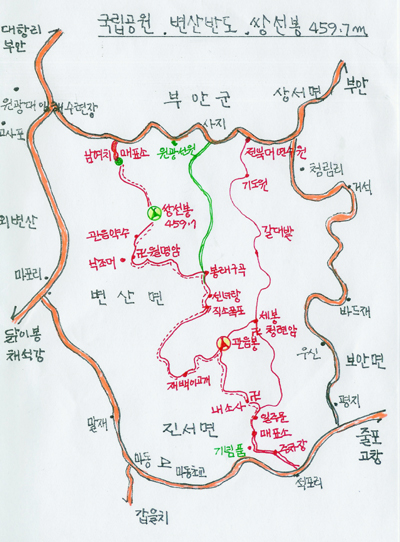 국립공원 . 변산반도 . 쌍선봉 459.7m
대항리
부안
부안
부안군
상서면
고사포
사지
남여치
매표소
원광선원
청림리
거석
기도원
쌍선봉
459.7
갈대밭
관음약수
외변산
낙조대
卍월명암
마포리
봉래구곡
변산면
선녀탕
직소폭포
바드재
세봉
卍청련암
닭이봉
채석강
관음봉
우신
보안면
재백이고개
내소사
卍
평지
일주문
말재
진서면
매표소
기념품
주차장
줄포
고창
마동
마동초교
석포리
갑을치